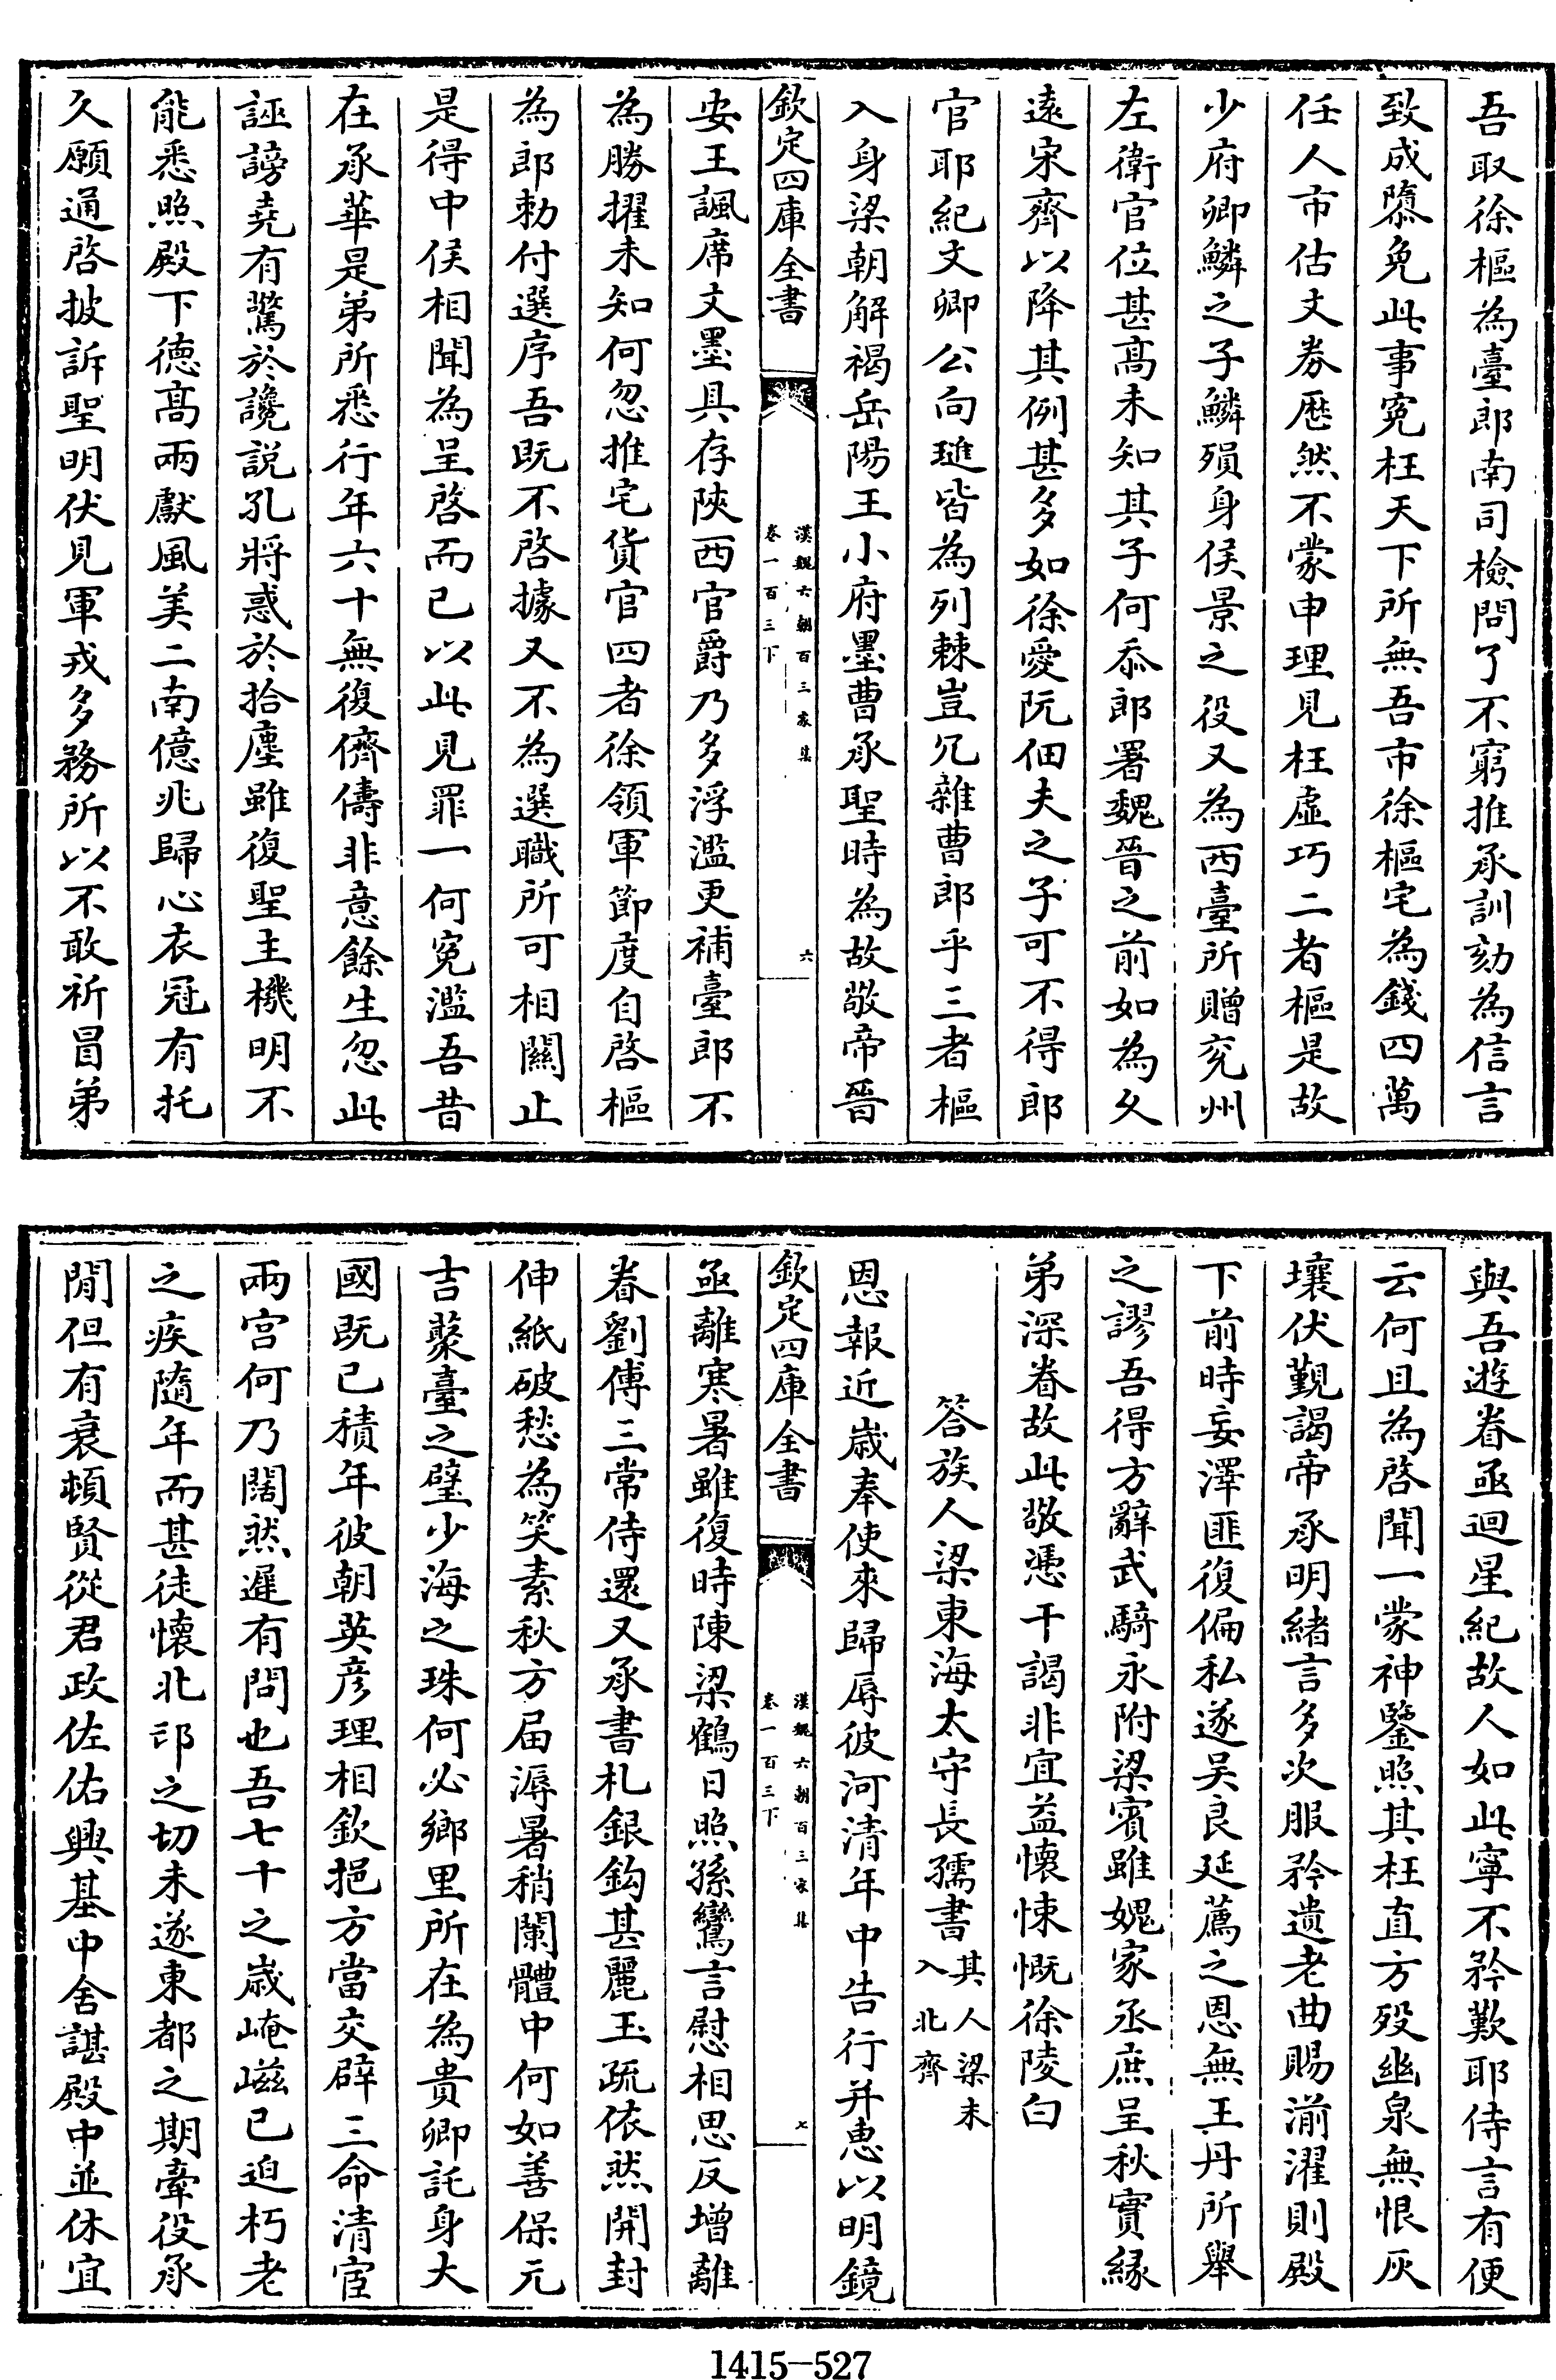 吾取徐樞為臺郎南司檢問了不窮推承訓劾為信言
致成隳免此事寃枉天下所無吾市徐樞宅為錢四萬
任人市估丈劵歴然不蒙申理見枉虛巧二者樞是故
少府卿鱗之子鱗殞身侯景之役又為西臺所贈兖州
左衛官位甚髙未知其子何忝郎署魏晉之前如為久
遠宋齊以降其例甚多如徐愛阮佃夫之子可不得郎
官耶紀文卿公向璡皆為列棘豈兄雜曹郎乎三者樞
入身梁朝解褐岳陽王小府墨曹承聖時為故敬帝晉
欽定四庫全書
漢魏六朝百三家集
卷一百三下
六
安王諷席文墨具存陜西官爵乃多浮濫更補臺郎不
為勝擢未知何忽推宅貨官四者徐領軍節度自啓樞
為郎勅付選序吾既不啓據又不為選職所可相關止
是得中侯相聞為呈啓而已以此見罪一何寃濫吾昔
在承華是弟所悉行年六十無復儕儔非意餘生忽此
誣謗堯有驚於讒説孔將惑於拾塵雖復聖主機明不
能悉照殿下德髙兩獻風美二南億兆歸心衣冠有托
久願通啓披訴聖明伏見軍戎多務所以不敢祈冒弟
與吾遊眷亟迴星紀故人如此寧不矜歎耶侍言有便
云何且為啓聞一蒙神鑒照其枉直方殁幽泉無恨灰
壤伏覲謁帝承明緒言多次服矜遺老曲賜湔濯則殿
下前時妄澤匪復偏私遂吴良延薦之恩無王丹所舉
之謬吾得方辭武騎永附梁賓雖媿家丞庶呈秋實縁
弟深眷故此敬憑干謁非宜益懷悚慨徐陵白
答族人梁東海太守長孺書其人梁末入北齊
恩報近歳奉使來歸辱彼河清年中告行并惠以明鏡
欽定四庫全書
漢魏六朝百三家集
卷一百三下
七
亟離寒暑雖復時陳梁鶴日照孫鸞言慰相思反增離
眷劉傅三常侍還又承書札銀鈎甚麗玉疏依然開封
伸紙破愁為笑素秋方届溽暑稍闌體中何如善保元
吉藂臺之璧少海之珠何必鄉里所在為貴卿託身大
國既已積年彼朝英彦理相欽挹方當交辟三命清宦
兩宫何乃闊然遲有問也吾七十之歳崦嵫已迫朽老
之疾隨年而甚徒懷北邙之切未遂東都之期牽役承
閒但有衰頓賢從君政佐佑興基中舍諶殿中並休宜
1415—527